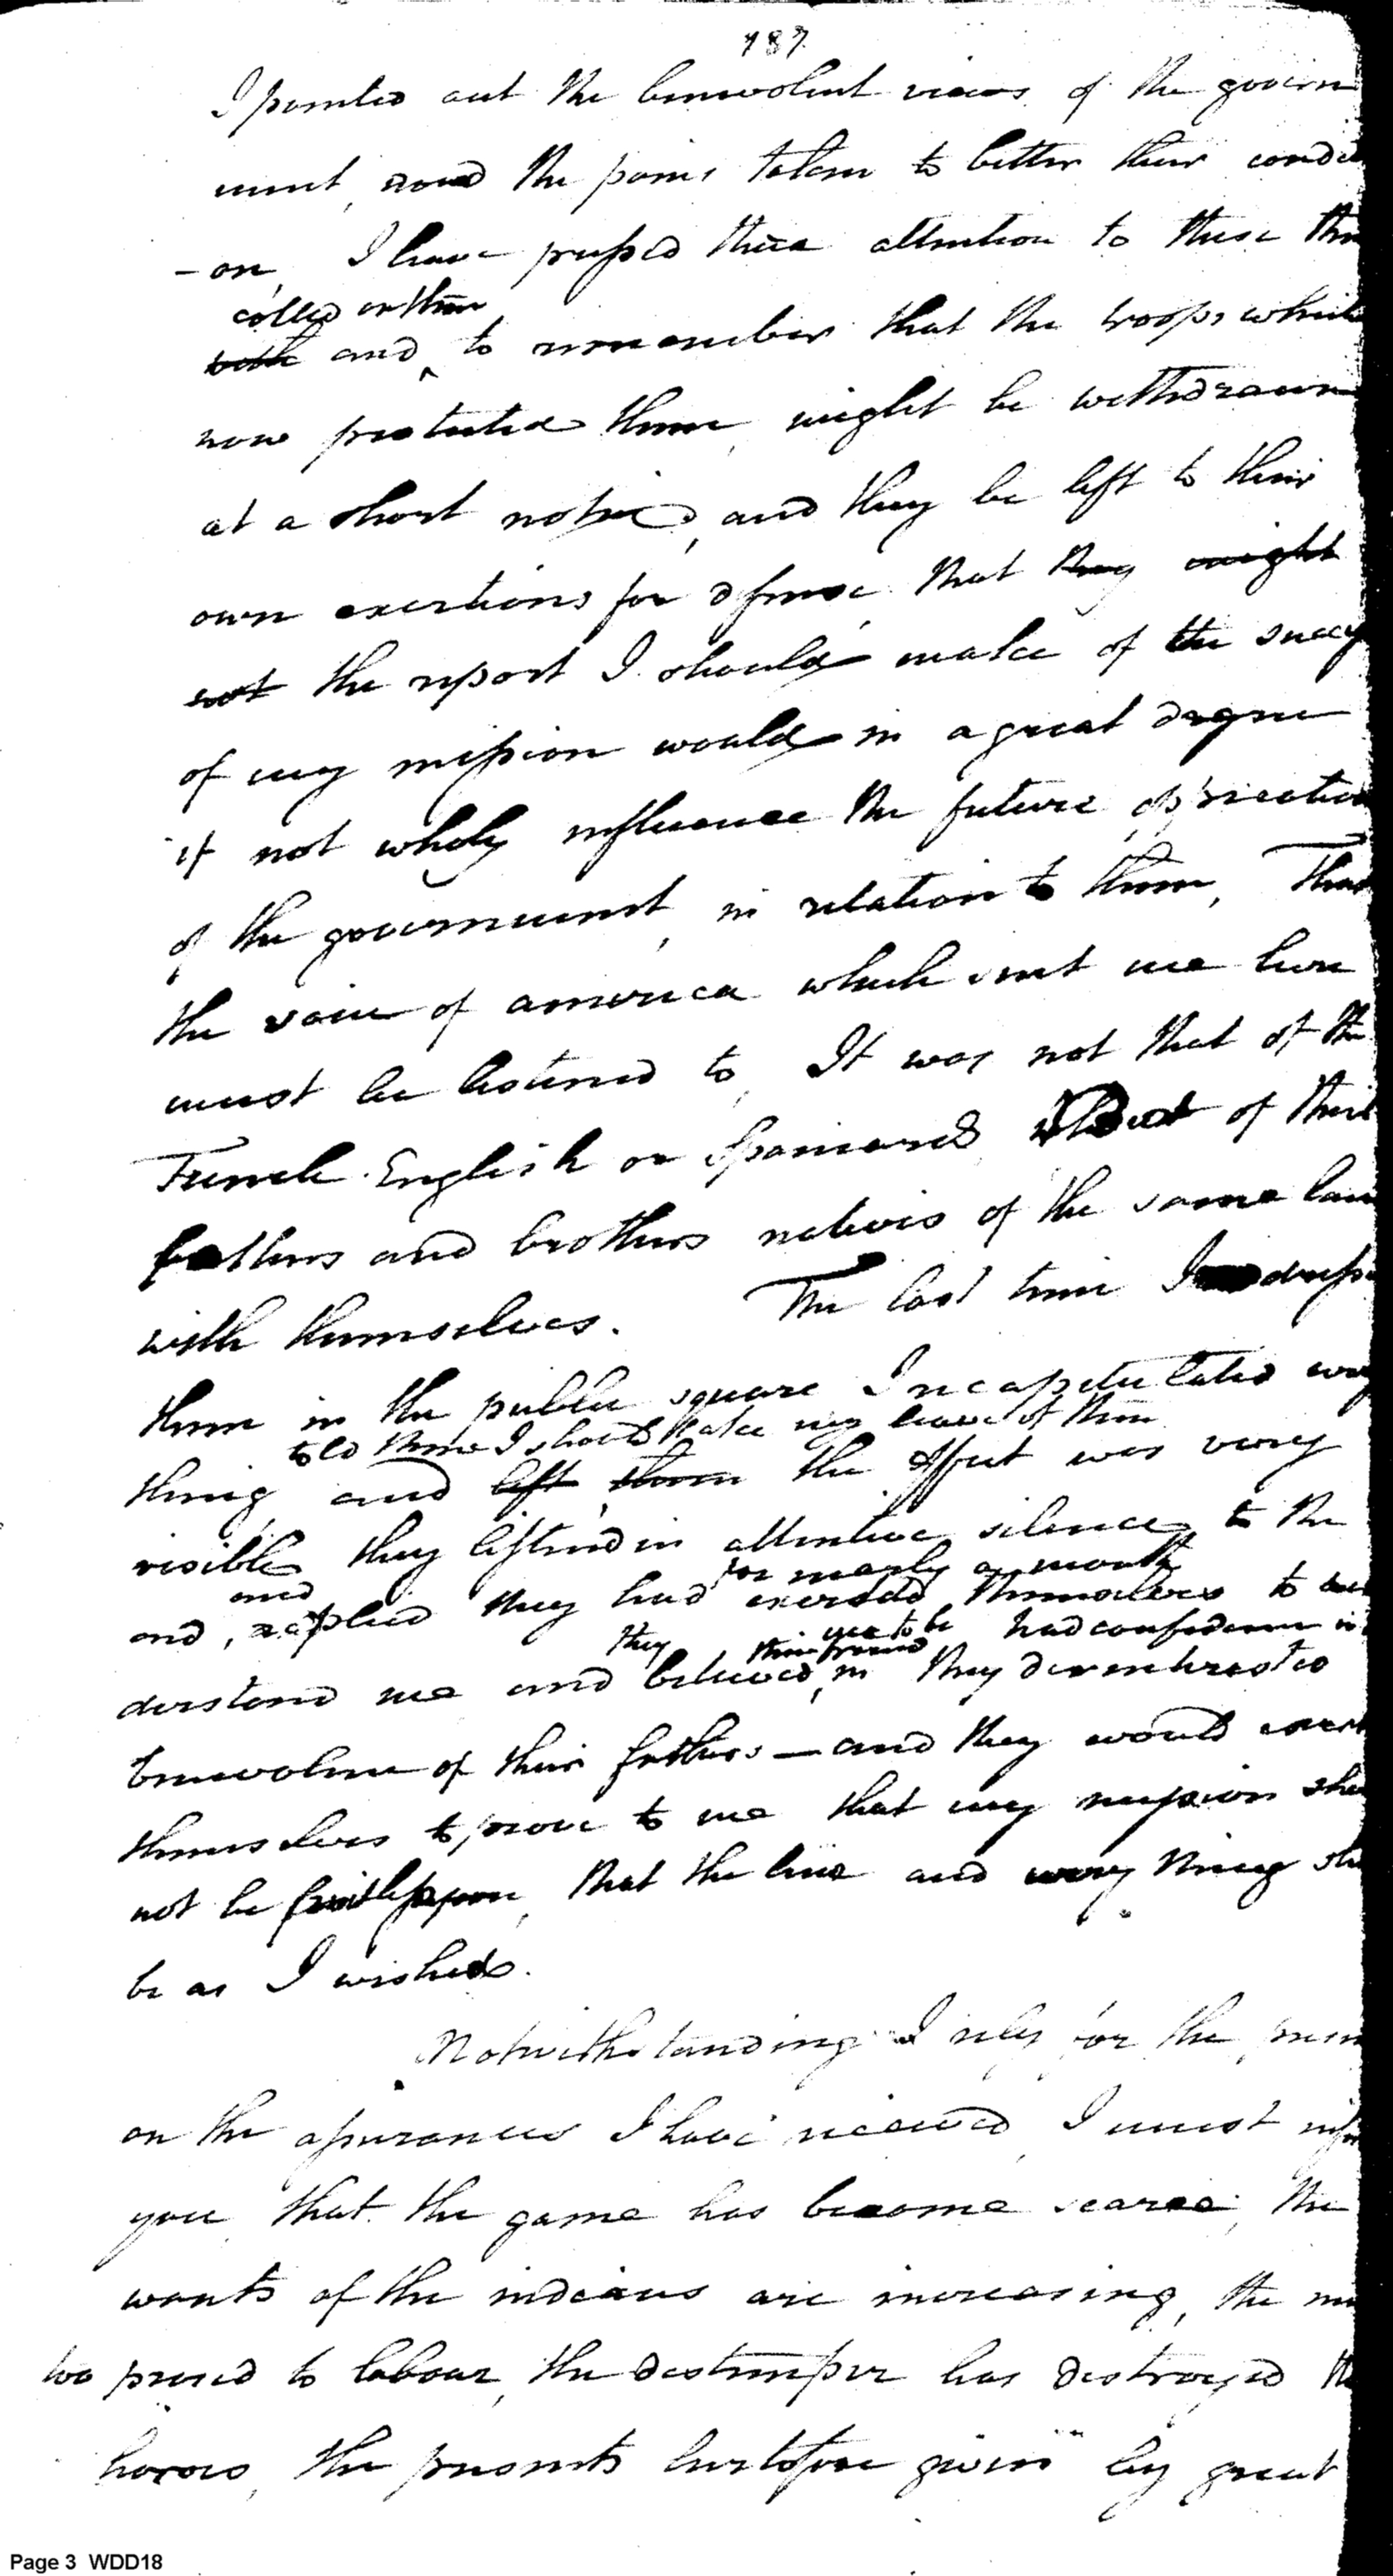 187
I pointed out the benevolent views of the govern
ment, and the pains taken to better their condi
-on, I have pressed their attention to these thin
called on them
both and ^ to remember that the troops which
now protected them, might be withdrawn
at a short notice, and they be left to their
own exertions for defense, that they might
not the report I should make of the succ
of my mission would in a great degree
if not wholy influence the future operation
of the government, in relation to them, That
the voice of america which sent me here
must be listened to, It was not that of the
French. English or Spaniard of their
fathers and brothers natives of the same lan
with themselves. The last time I adress
them in the public square I recapitulated every
told them I should take my leave of them
thing and left them the effect was very
visible, they listened in attentive silence, to the
and for nearly a month
end, replied they had exerted themselves to un
they me to be their friend had confidence in
derstand me and believed, in they demonstrated
benevolence of their fathers — and they would exert
themselves to prove to me that my mission sho
not be fruitless, that the line and every thing sho
be as I wished.
Notwithstanding I rely for the presen
on the assurances I have received, I must info
you, that the game has become scarce, the
wants of the indians are increasing, the me
too proud to labour, the distemper has destroyed th
horses, the presents heretofore given by great
Page 3 WDD18